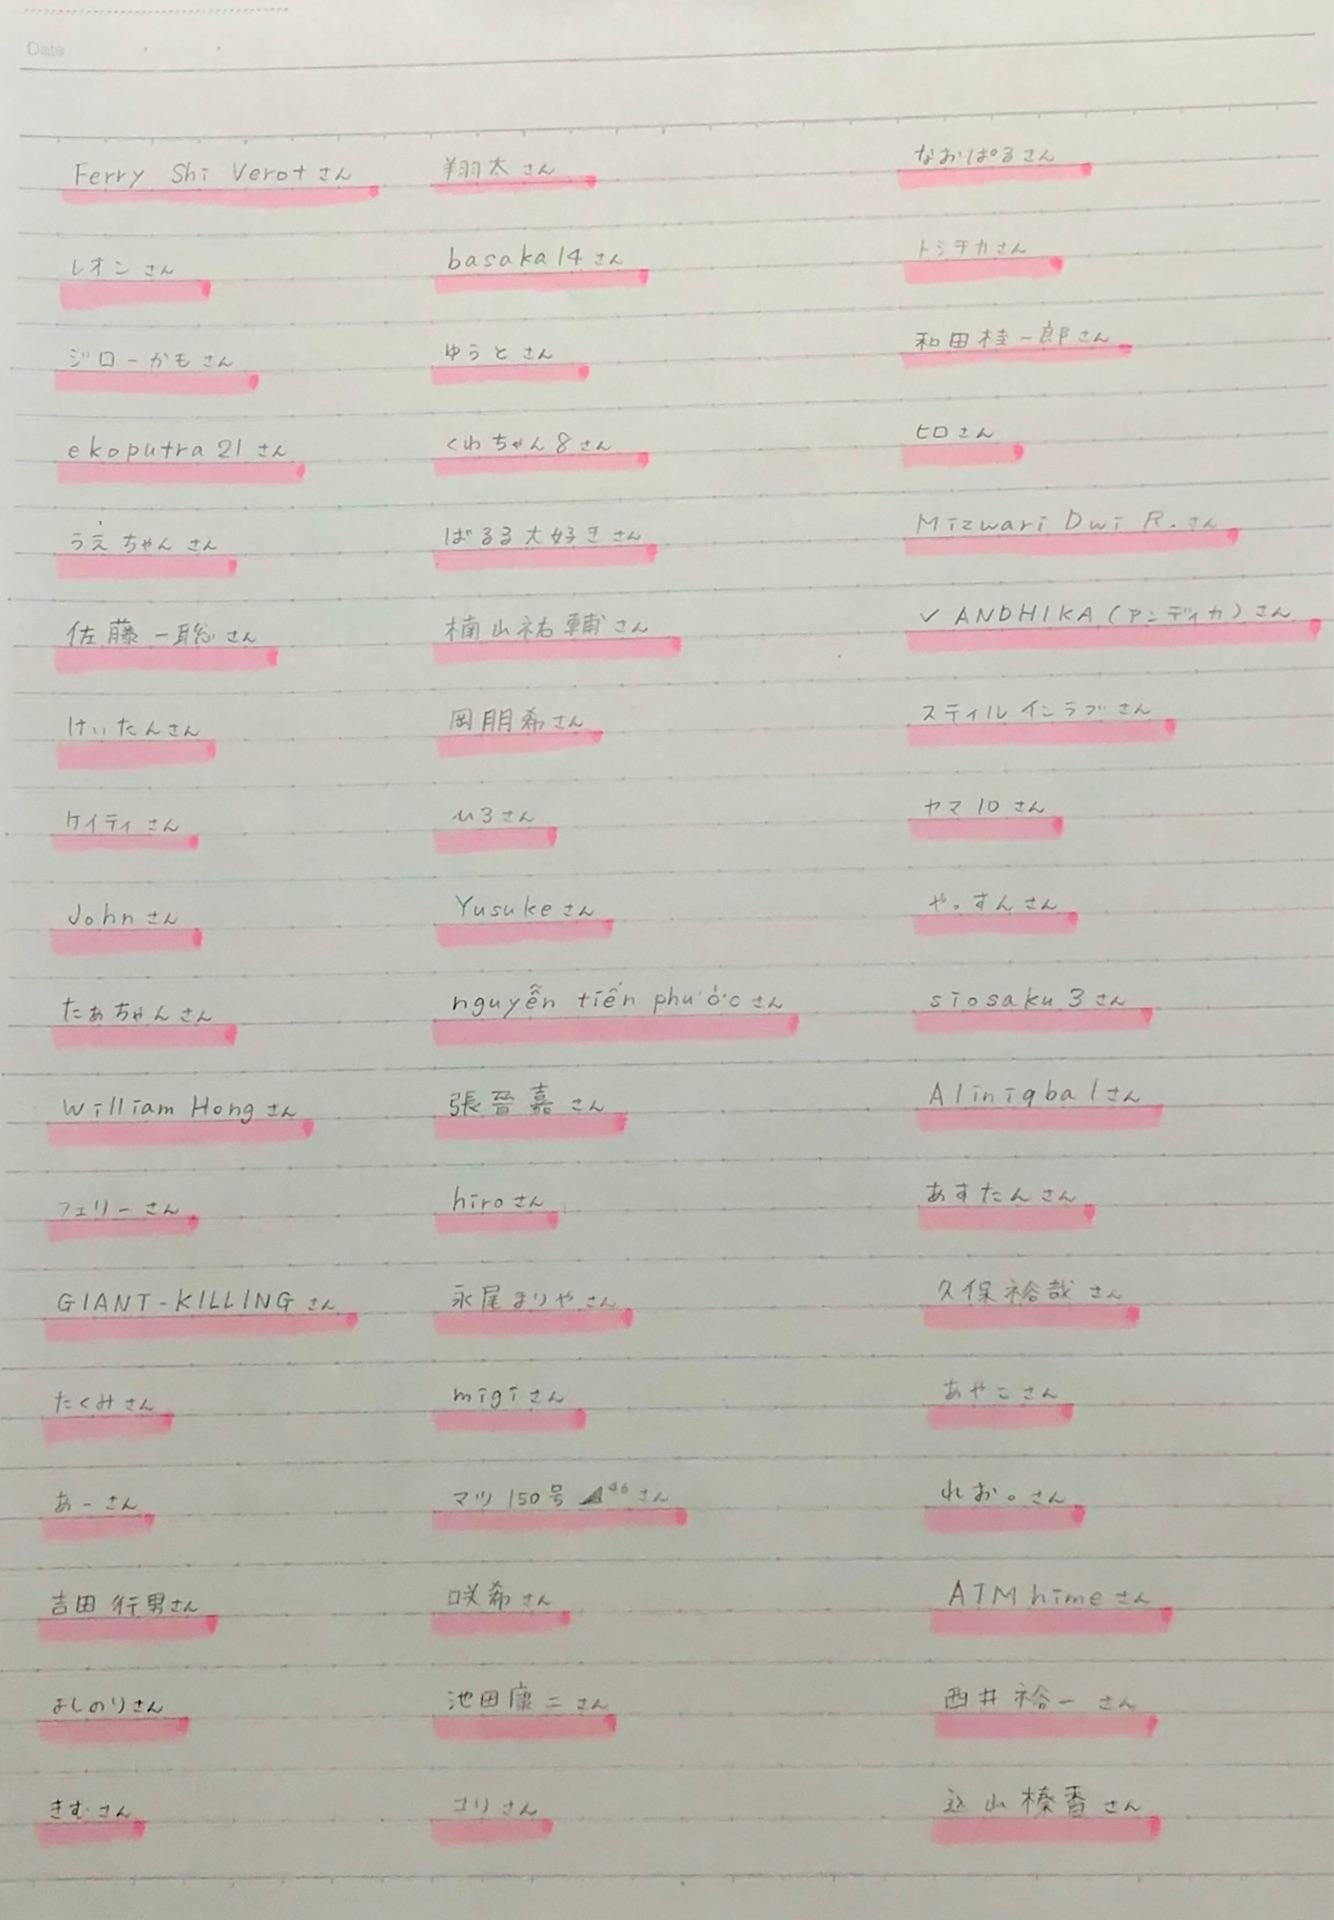 Date
Ferry Shi Verot さん
レオン さん
ジローかも さん
ekoputra 21 さん
うえちゃん さん
佐藤一聡 さん
けいたんさん
ケイティ さん
John さん
たぁちゃん さん
William Hong さん
フェリー さん
GIANT-KILLING さん
たくみ さん
あー さん
吉田 行男さん
よしのりさん
きむ さん
翔太 さん
basaka14 さん
ゆうと さん
くわちゃん8 さん
ぱるる大好き さん
楠山祐輔 さん
岡朋希さん
u3 さん
Yusuke さん
nguyễn tiến phước さん
張晉嘉 さん
hiro さん
永尾まりや さん
migi さん
マツ150号 46 さん
咲希 さん
池田康二 さん
ユリ さん
なおぱるさん
トシチカさん
和田桂一郎さん
ヒロ さん
Mizwari Dwi R. さん
✓ ANDHIKA (アンディカ) さん
スティルインラブ さん
ヤマ10 さん
や。すん さん
siosaku 3 さん
Aliniqbal さん
あすたん さん
久保裕哉 さん
あやこ さん
れお。さん
ATMhime さん
西井裕一 さん
込山榛香 さん